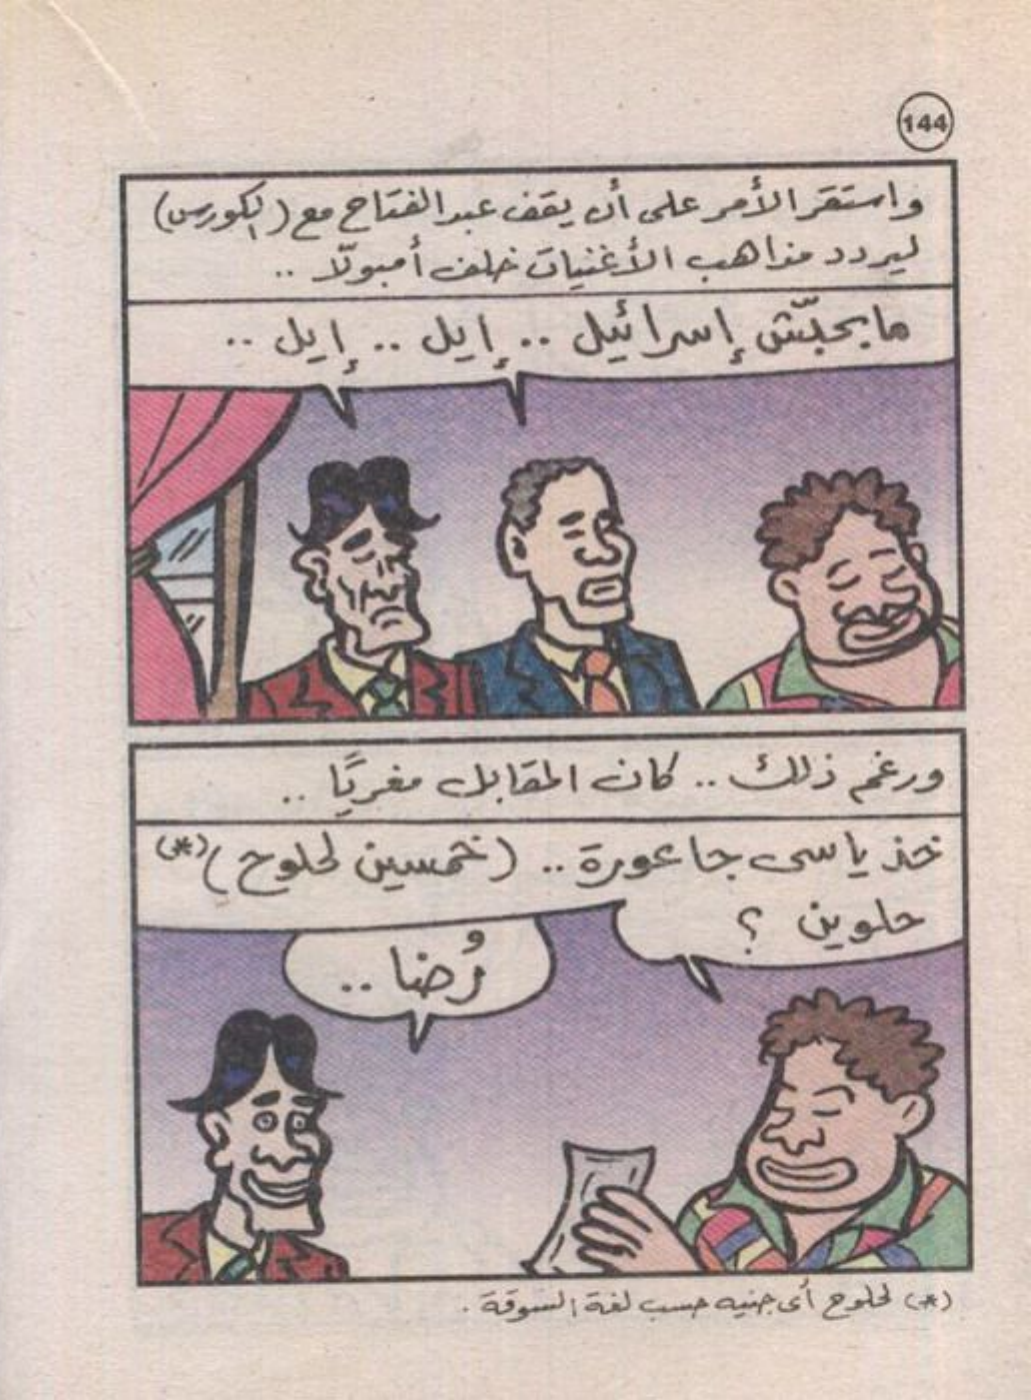 144
واستقر الأمر على أن يقف عبد الفتاح مع (الكورس)
ليردد مذاهب الأغنيات خلف أمبولّا ..
مابحبّش إسرائيل .. إيل .. إيل ..
ورغم ذلك .. كان المقابل مغريًا ..
خذ يا سى جاعورة .. (خمسين لحلوح)(*)
حلوين ؟
رُضا ..
(*) لحلوح أى جنيه حسب لغة السوقة .